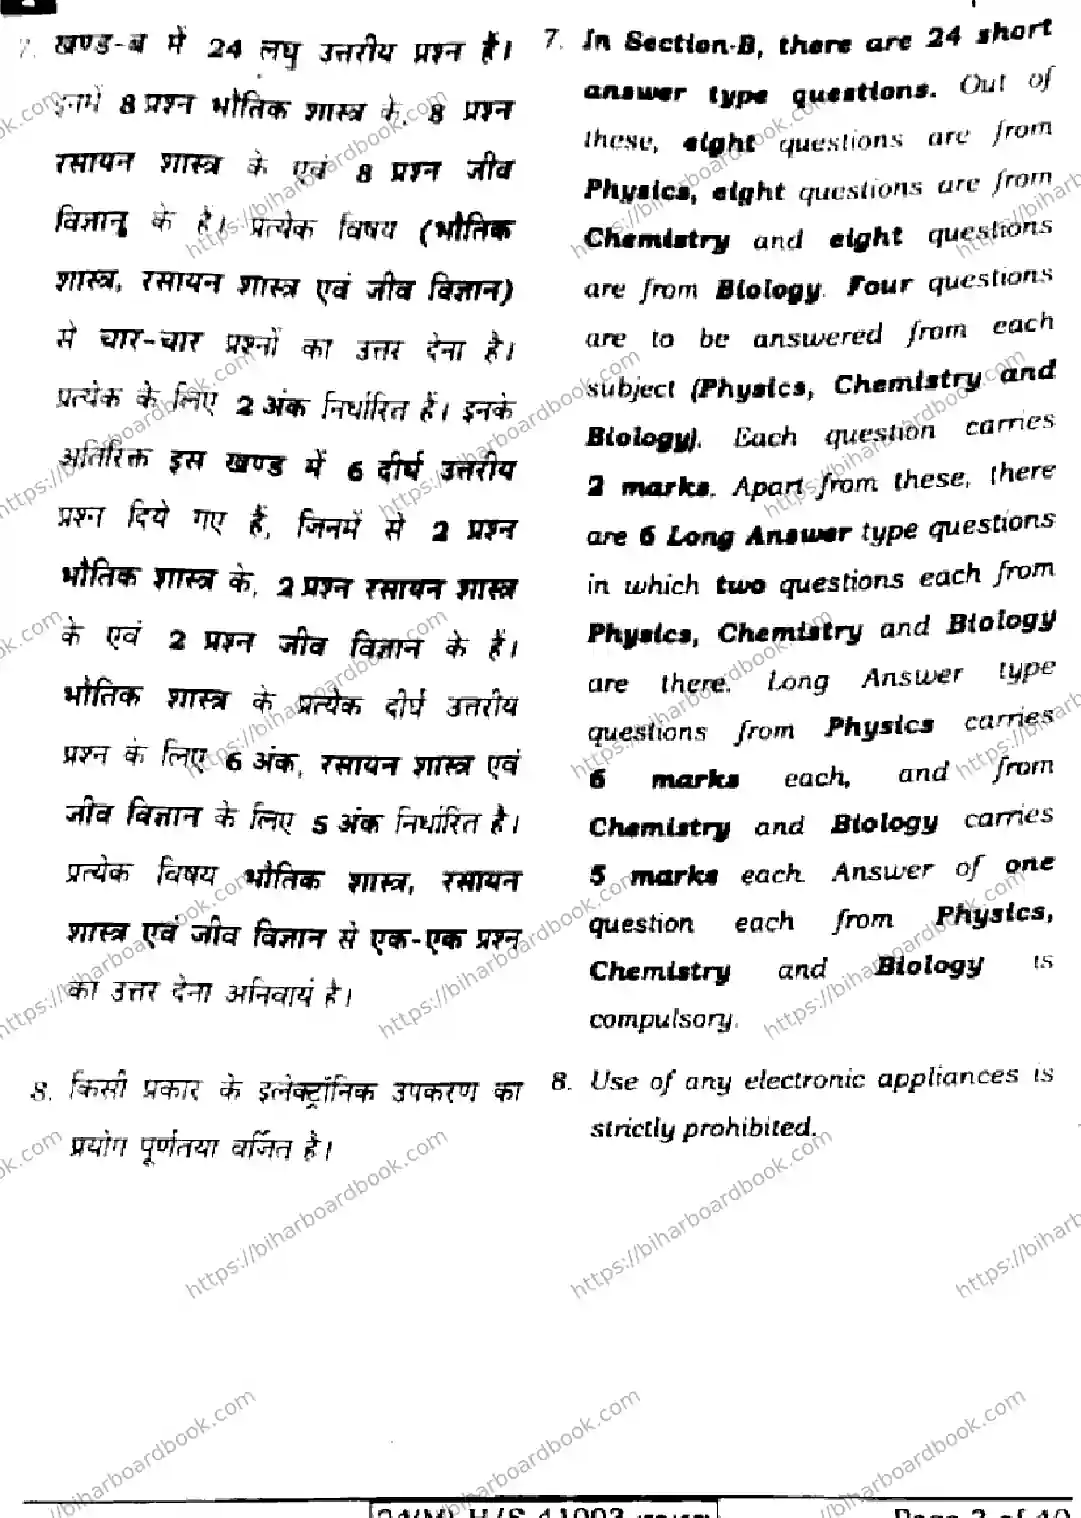 7. खण्ड-ब में 24 लघु उत्तरीय प्रश्न हैं।
इनमें 8 प्रश्न भौतिक शास्त्र के, 8 प्रश्न
रसायन शास्त्र के एवं 8 प्रश्न जीव
विज्ञान के हैं। प्रत्येक विषय (भौतिक
शास्त्र, रसायन शास्त्र एवं जीव विज्ञान)
से चार-चार प्रश्नों का उत्तर देना है।
प्रत्येक के लिए 2 अंक निर्धारित हैं। इनके
अतिरिक्त इस खण्ड में 6 दीर्घ उत्तरीय
प्रश्न दिये गए हैं, जिनमें से 2 प्रश्न
भौतिक शास्त्र के, 2 प्रश्न रसायन शास्त्र
के एवं 2 प्रश्न जीव विज्ञान के हैं।
भौतिक शास्त्र के प्रत्येक दीर्घ उत्तरीय
प्रश्न के लिए 6 अंक, रसायन शास्त्र एवं
जीव विज्ञान के लिए 5 अंक निर्धारित है।
प्रत्येक विषय भौतिक शास्त्र, रसायन
शास्त्र एवं जीव विज्ञान से एक-एक प्रश्न
का उत्तर देना अनिवार्य है।
8. किसी प्रकार के इलेक्ट्रॉनिक उपकरण का
प्रयोग पूर्णतया वर्जित है।
7. In Section-B, there are 24 short
answer type questions. Out of
these, eight questions are from
Physics, eight questions are from
Chemistry and eight questions
are from Biology. Four questions
are to be answered from each
subject (Physics, Chemistry and
Biology). Each question carries
2 marks. Apart from these, there
are 6 Long Answer type questions
in which two questions each from
Physics, Chemistry and Biology
are there. Long Answer type
questions from Physics carries
6 marks each, and from
Chemistry and Biology carries
5 marks each. Answer of one
question each from Physics,
Chemistry and Biology is
compulsory.
8. Use of any electronic appliances is
strictly prohibited.
https://biharboardbook.com